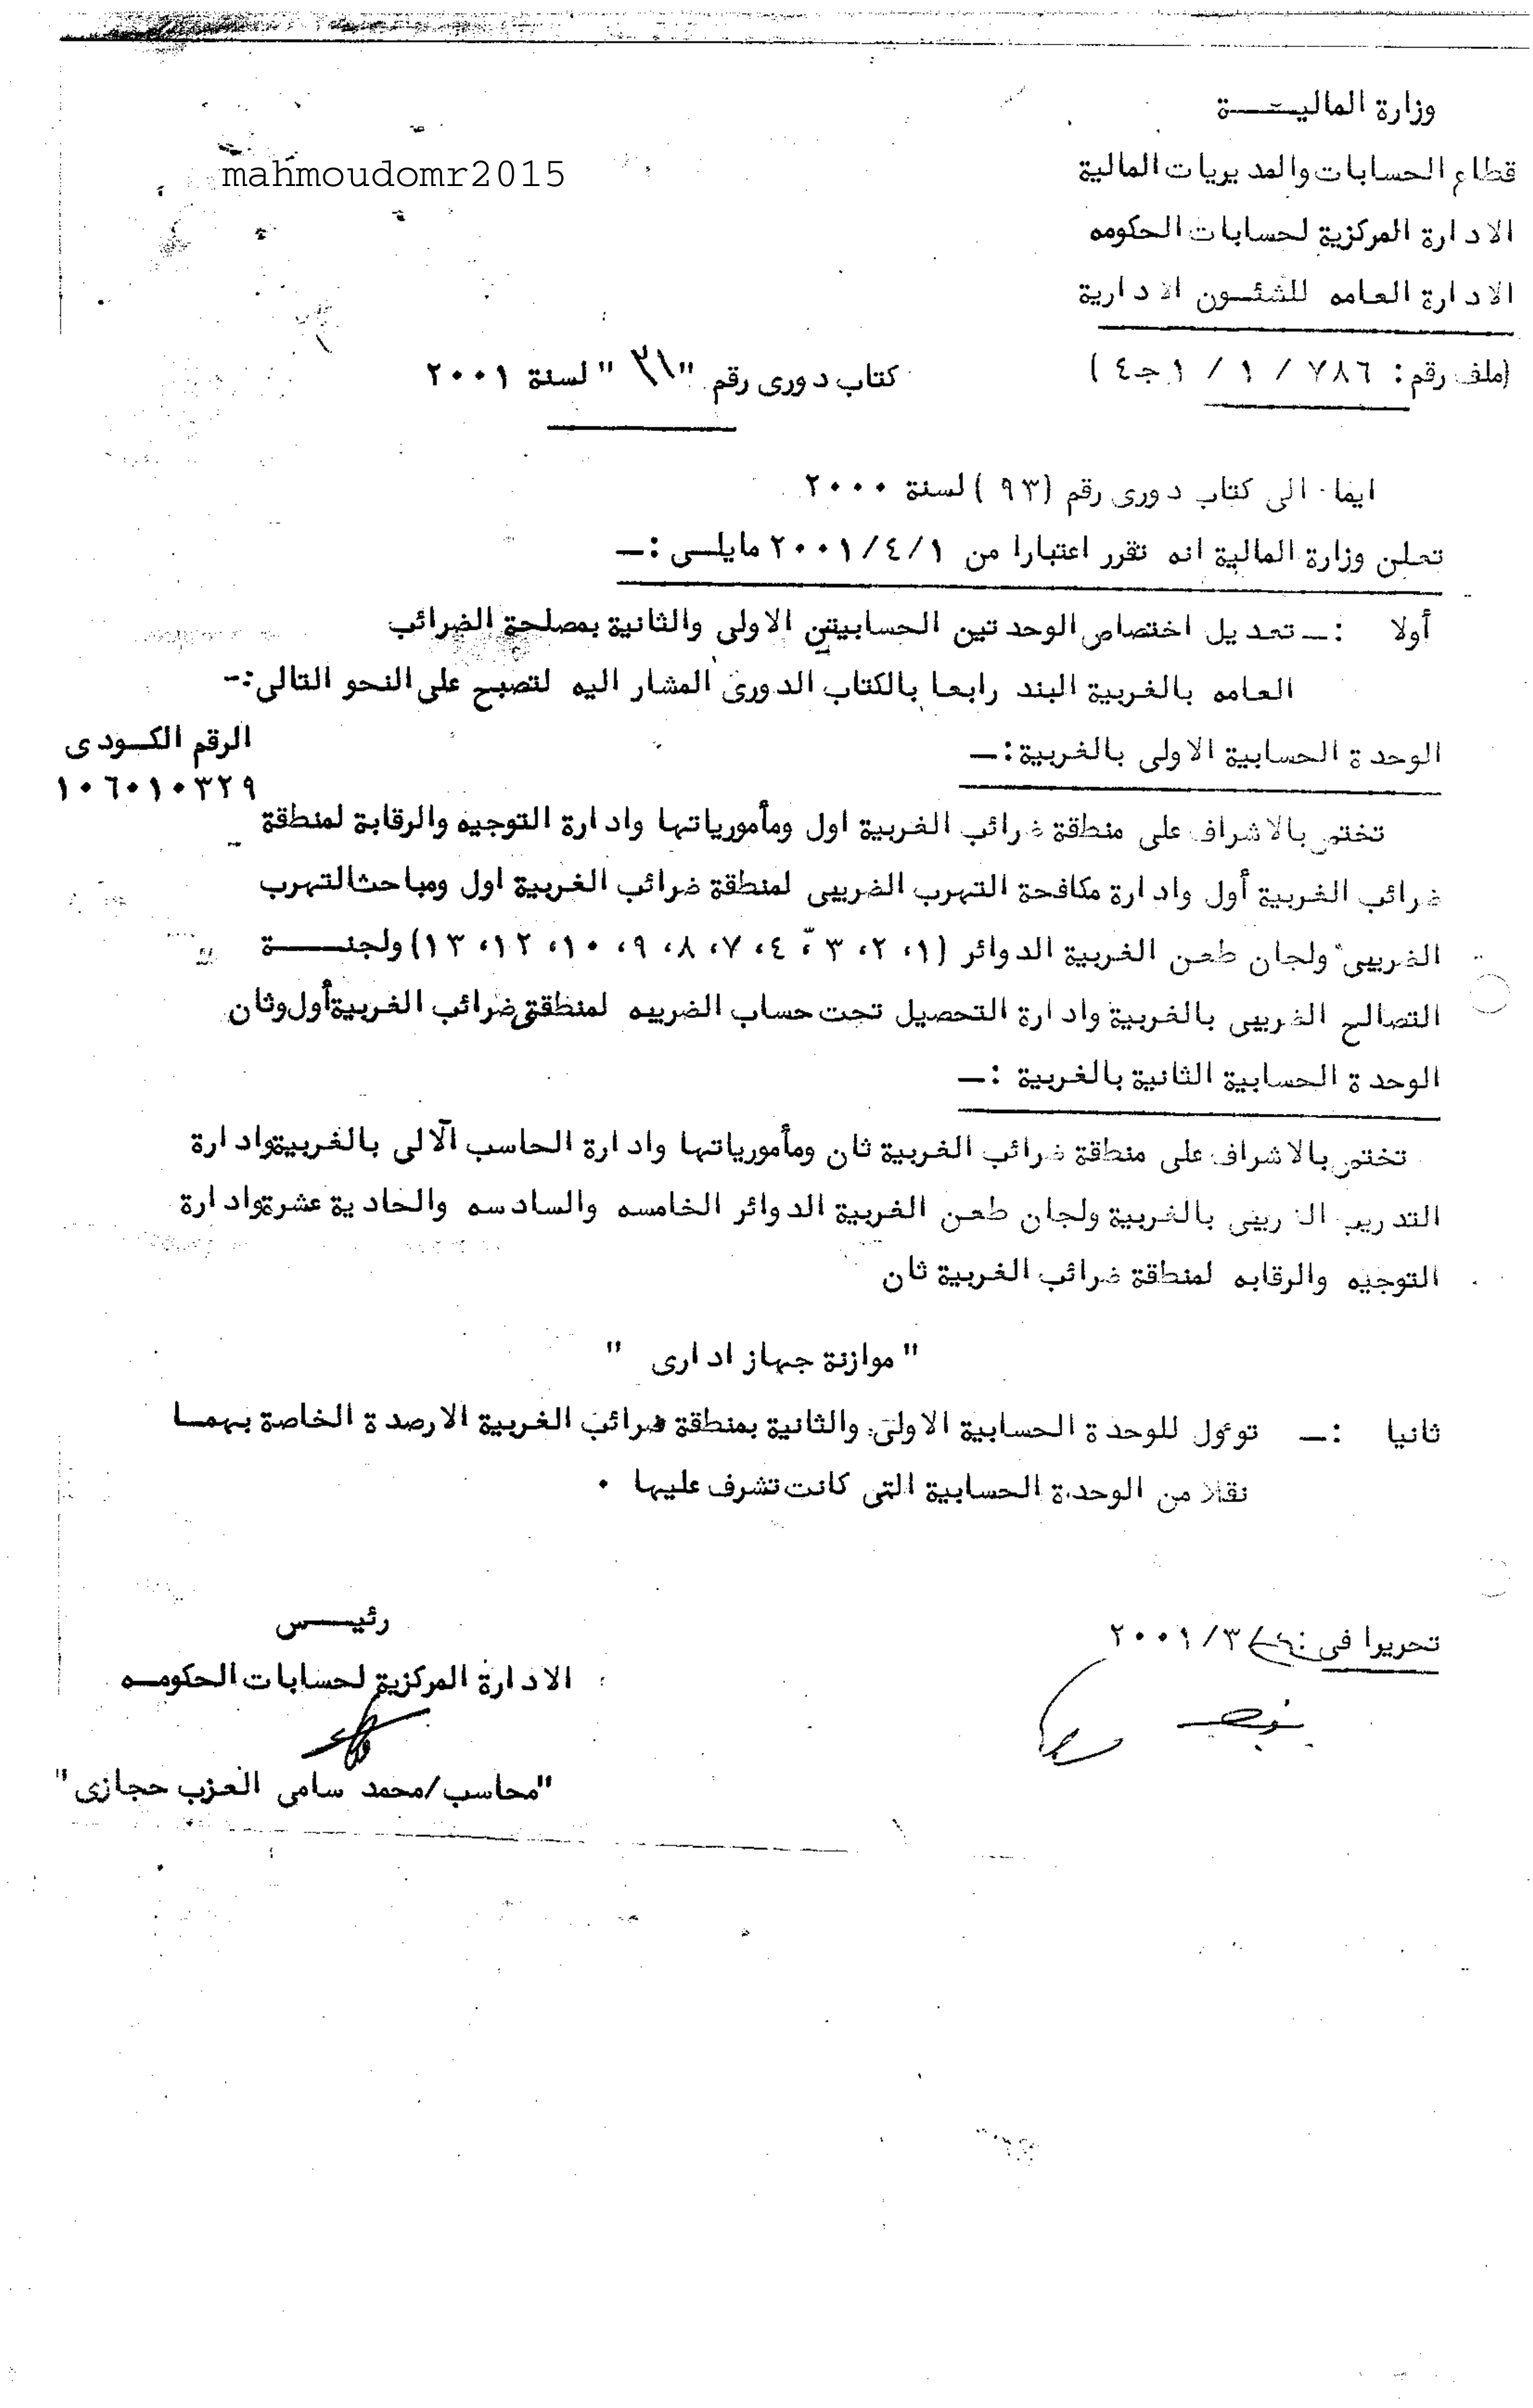 وزارة الماليـــــة
mahmoudomr2015
قطاع الحسابات والمديريات المالية
الادارة المركزية لحسابات الحكومه
الادارة العامه للشئـون الادارية
(ملف رقم: ٧٨٦ / ١ / ١ جـ٤)
كتاب دورى رقم "٣١" لسنة ٢٠٠١
ايما الى كتاب دورى رقم (٩٣) لسنة ٢٠٠٠
تعلن وزارة المالية انه تقرر اعتبارا من ٢٠٠١/٤/١ مايلـى :ـ
أولا :ـ تعديل اختصاص الوحدتين الحسابيتين الاولى والثانية بمصلحة الضرائب
العامه بالغربية البند رابعا بالكتاب الدورى المشار اليه لتصبح على النحو التالى:-
الوحدة الحسابية الاولى بالغربية:ـ
الرقم الكـودى
١٠٦٠١٠٣٢٩
تختص بالاشراف على منطقة ضرائب الغربية اول ومأمورياتها وادارة التوجيه والرقابة لمنطقة
ضرائب الغربية أول وادارة مكافحة التهرب الضريبى لمنطقة ضرائب الغربية اول ومباحث التهرب
الضريبى ولجان طعن الغربية الدوائر (١، ٢، ٣، ٤، ٧، ٨، ٩، ١٠، ١٢، ١٣) ولجنـــــة
التصالح الضريبى بالغربية وادارة التحصيل تحت حساب الضريبه لمنطقتى ضرائب الغربية أول وثان
الوحدة الحسابية الثانية بالغربية :ـ
تختص بالاشراف على منطقة ضرائب الغربية ثان ومأمورياتها وادارة الحاسب الآلى بالغربية وادارة
التدريب بالغربية ولجان طعن الغربية الدوائر الخامسه والسادسه والحادية عشرة وادارة
التوجيه والرقابه لمنطقة ضرائب الغربية ثان
" موازنة جهاز ادارى "
ثانيا :ـ توءول للوحدة الحسابية الاولى والثانية بمنطقة ضرائب الغربية الارصدة الخاصة بهمـا
نقلا من الوحدة الحسابية التى كانت تشرف عليها ٠
تحريرا فى : /٢٠٠١/٣
رئيـــس
الادارة المركزية لحسابات الحكومـه
"محاسب/محمد سامى العزب حجازى"